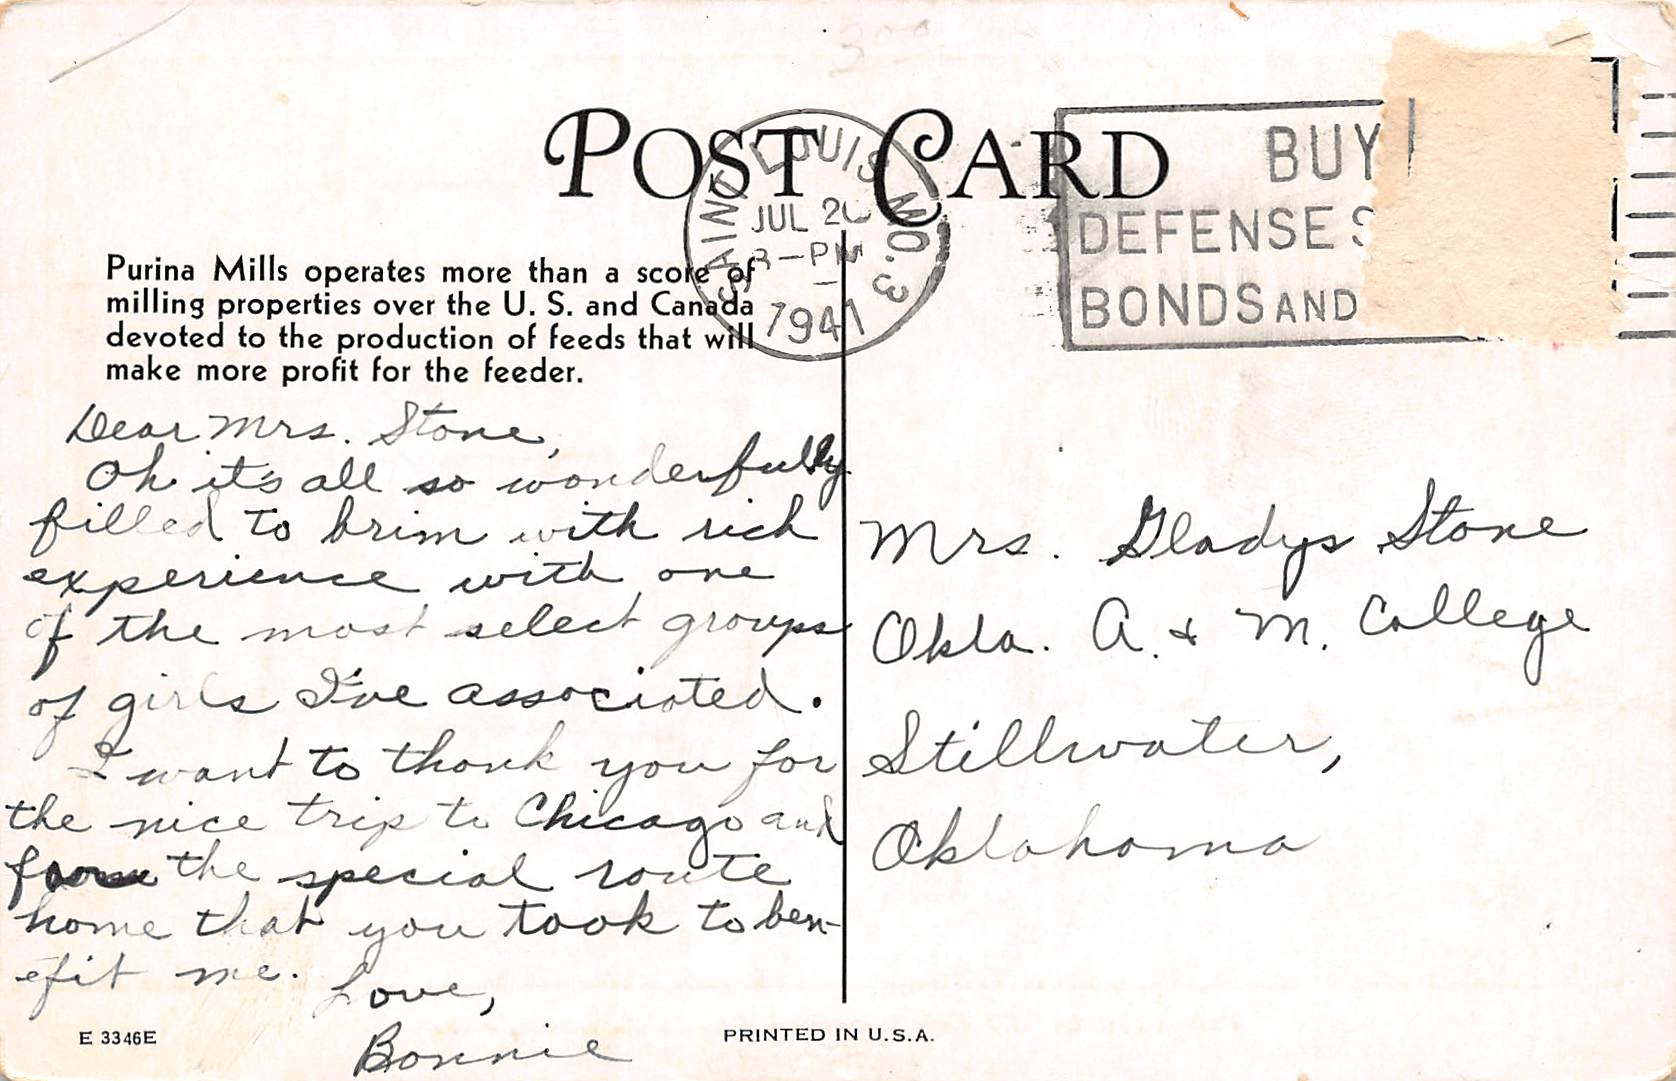 300
POST CARD
SAINT LOUIS NO. 3
JUL 2
3-PM
1941
BUY
DEFENSE S
BONDS AND
Purina Mills operates more than a score of
milling properties over the U. S. and Canada
devoted to the production of feeds that will
make more profit for the feeder.
Dear Mrs. Stone,
Oh it's all so wonderfully
filled to brim with rich
experience with one
of the most select groups
of girls I've associated.
I want to thank you for
the nice trip to Chicago and
the special route
home that you took to ben-
efit me.
Love,
Bonnie
Mrs. Gladys Stone
Okla. A. & M. College
Stillwater,
Oklahoma
E 3346E
PRINTED IN U.S.A.